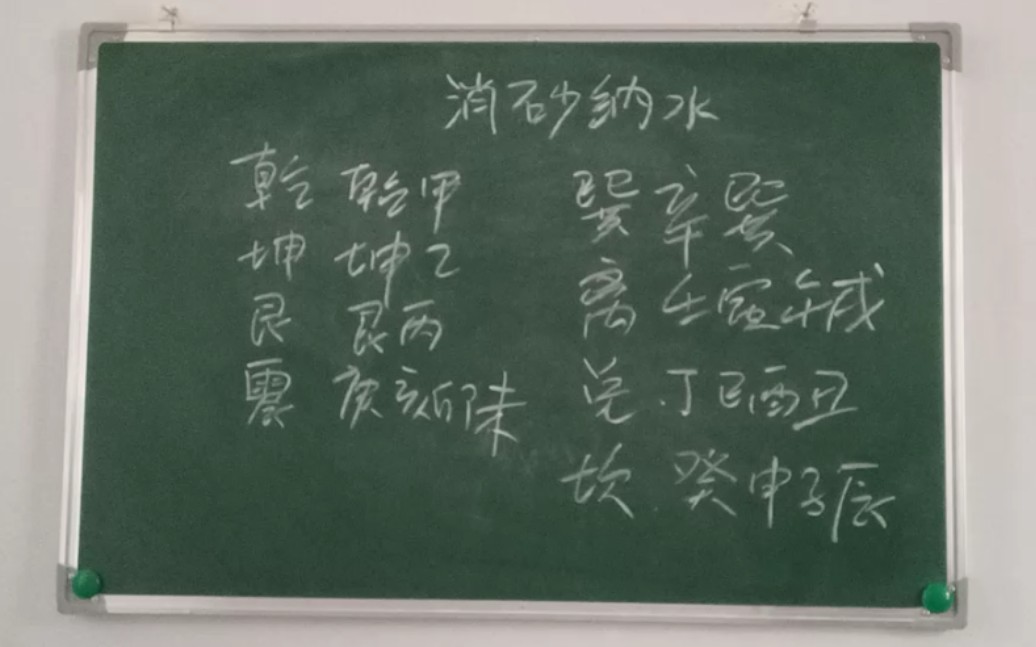 消砂纳水
乾 乾甲
坤 坤乙
艮 艮丙
震 庚亥卯未
巽 辛巽
离 壬寅午戌
兑 丁巳酉丑
坎 癸申子辰